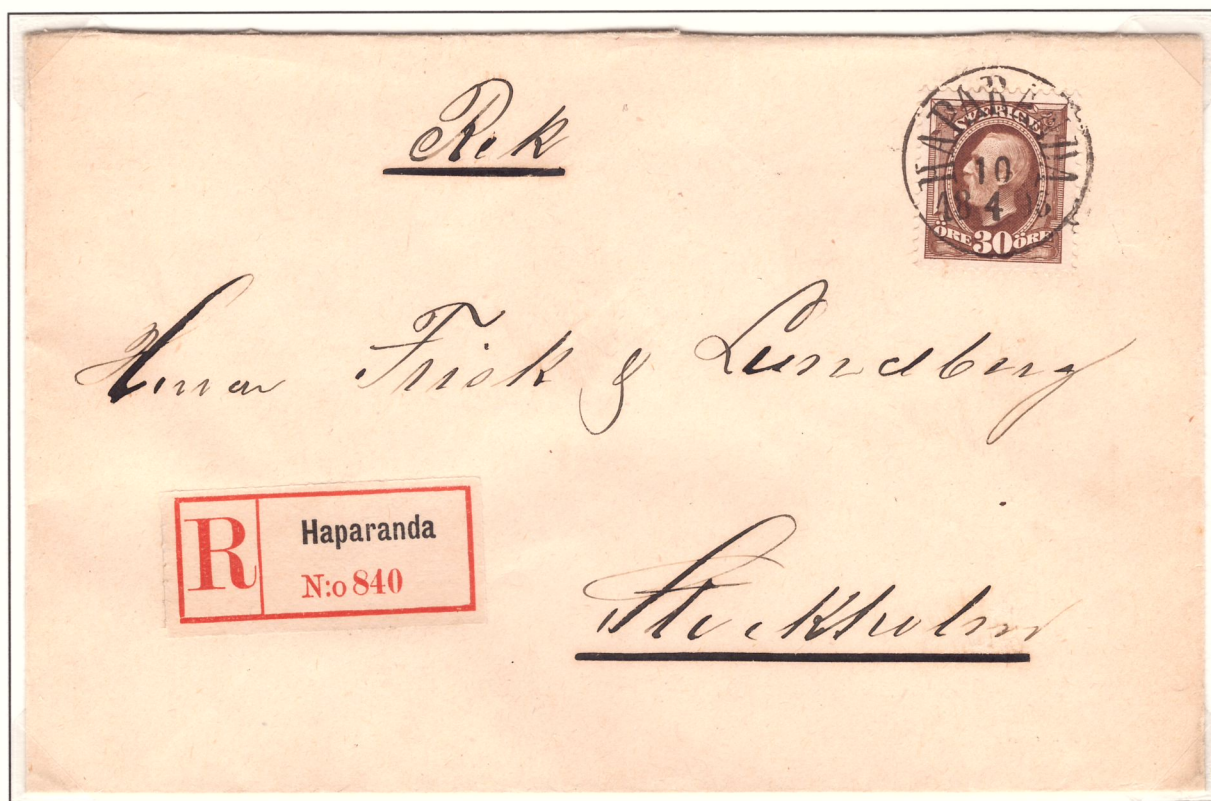 Rek
HAPARANDA
SVERIGE
10
18 4 96
ÖRE 30 ÖRE
Herrar Frisk & Lundberg
R
Haparanda
N:o 840
Stockholm